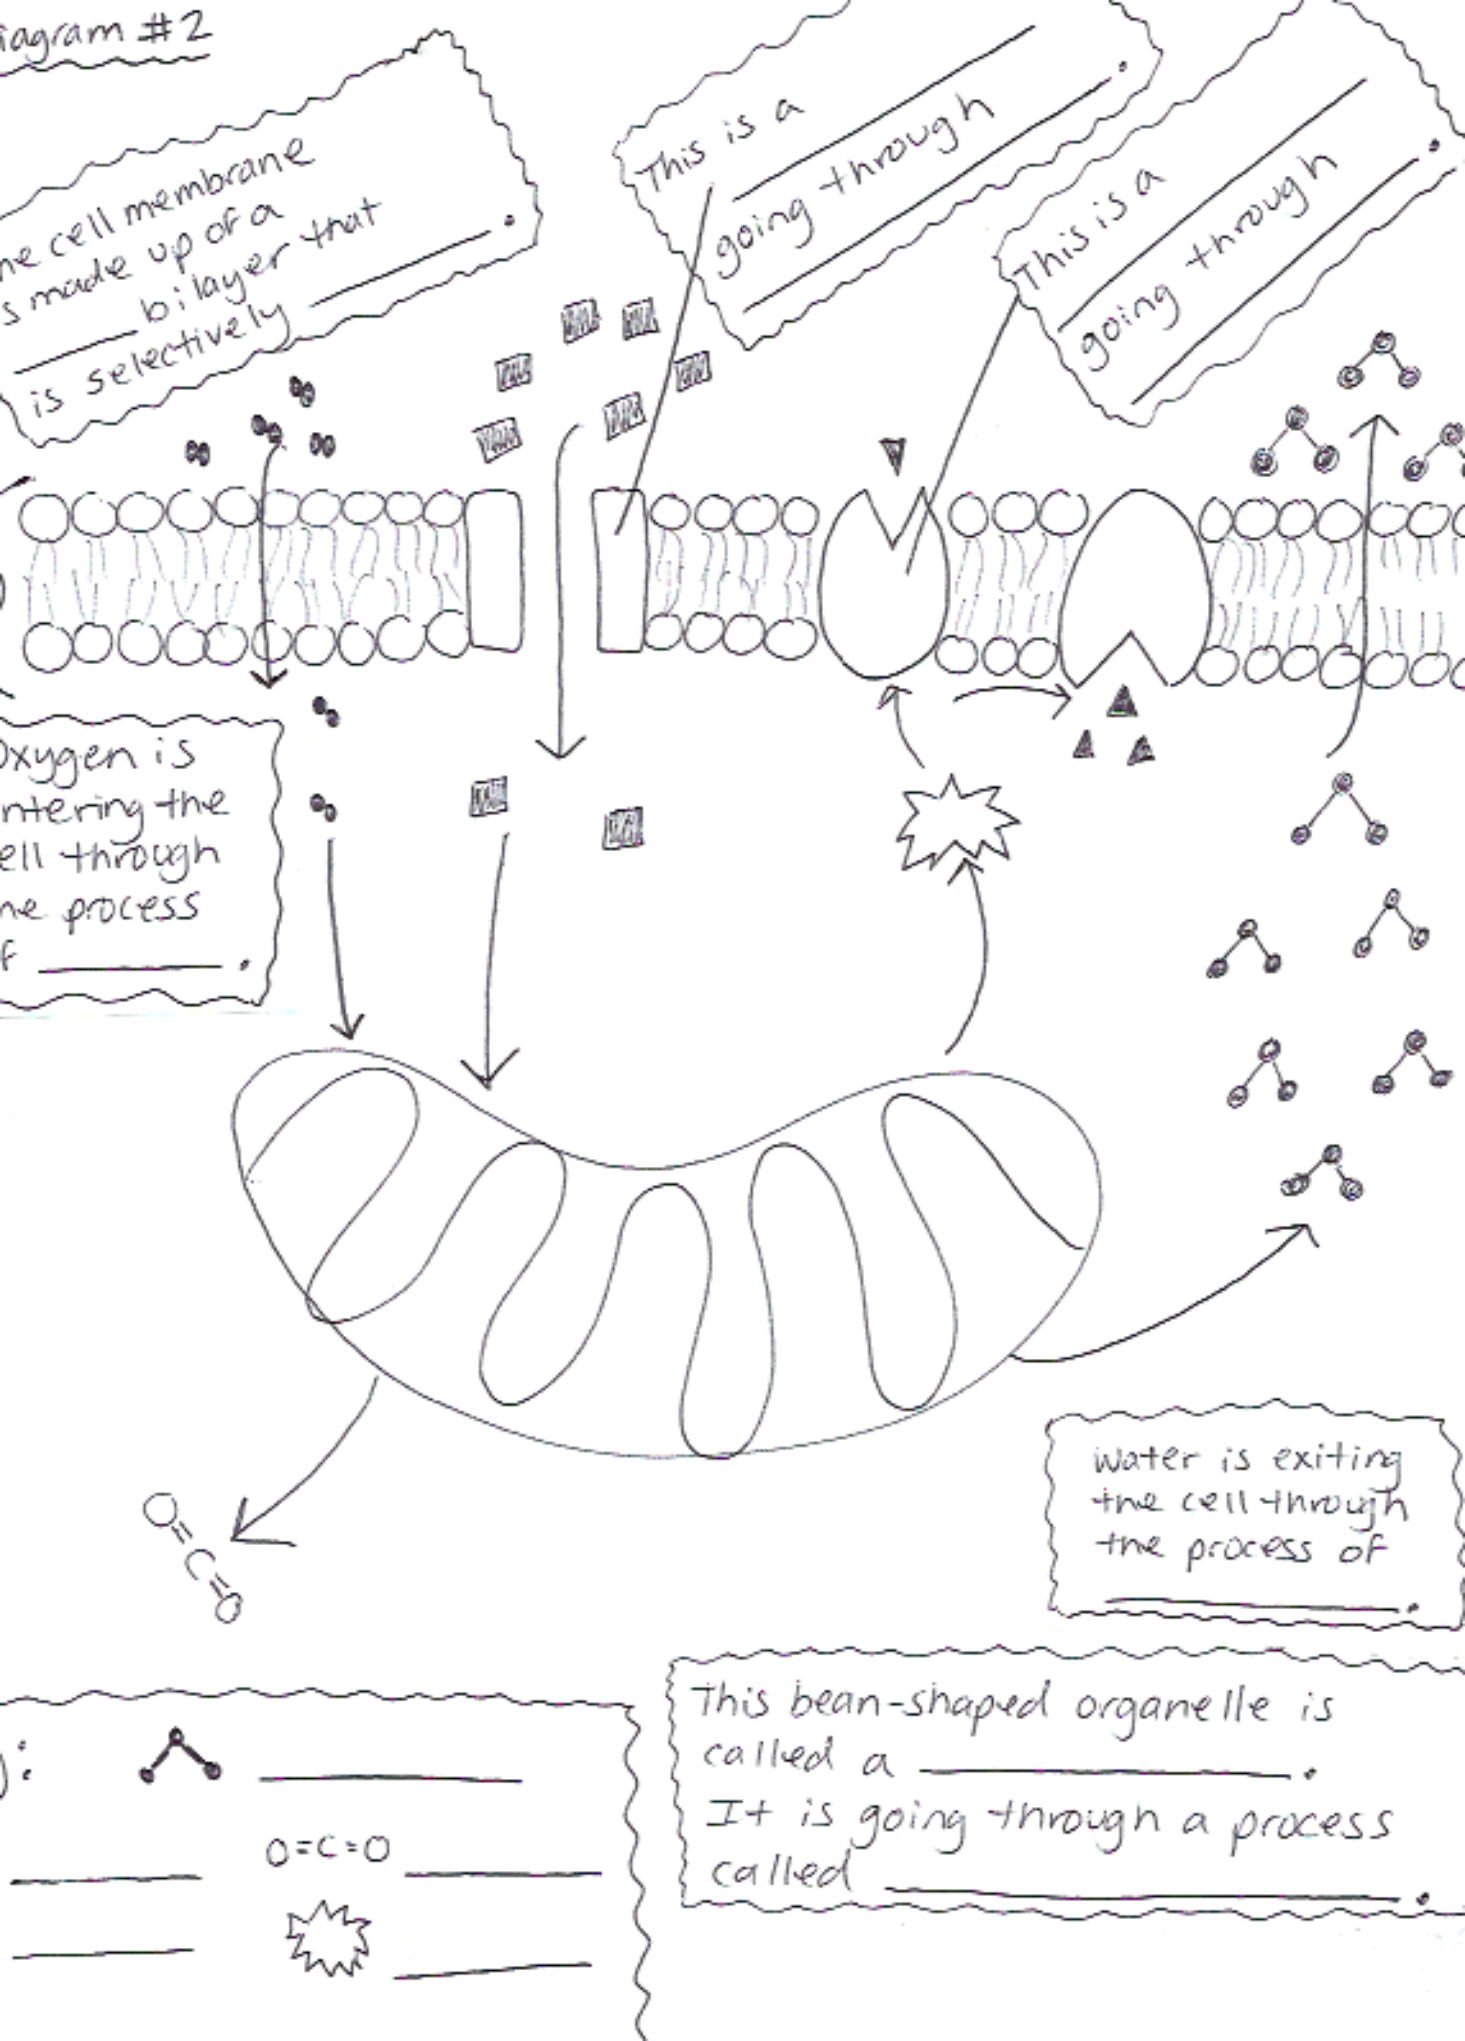 iagram #2
ne cell membrane
s made up of a
______ bilayer that
is selectively ______.
This is a ______
going through ______.
This is a ______
going through ______.
Oxygen is
ntering the
ell through
ne process
f ______.
Water is exiting
the cell through
the process of
______.
This bean-shaped organelle is
called a ______.
It is going through a process
called ______.
):
O=C=O
O=C=O